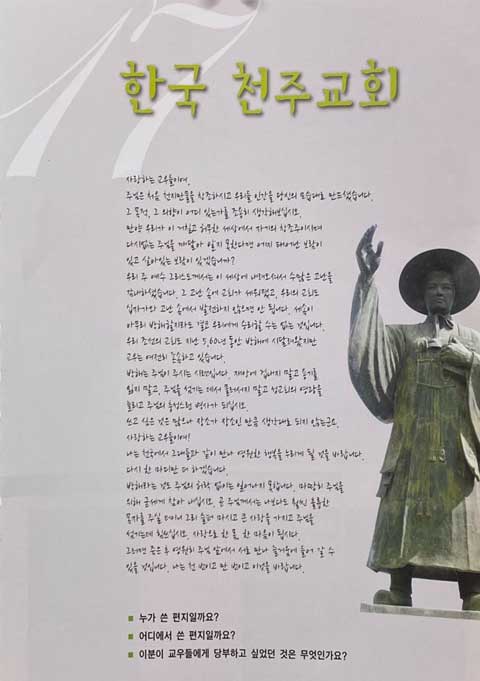 17
한국 천주교회
사랑하는 교우들이여,
주님은 처음 천지만물을 창조하시고 우리들 인간을 당신의 모습대로 만드셨습니다.
그 목적, 그 의향이 어디 있는가를 조용히 생각해보십시오.
만약 우리가 이 거칠고 허무한 세상에서 자기의 창조주이시며
다시없는 주님을 깨달아 알지 못한다면 어찌 태어난 보람이
있고 살아있는 보람이 있겠습니까?
우리 주 예수 그리스도께서는 이 세상에 내려오셔서 수많은 고난을
감내하셨습니다. 그 고난 속에 교회가 세워졌고, 우리의 교회도
십자가와 고난 속에서 발전하지 않으면 안 됩니다. 세속이
아무리 방해할지라도 결코 우리에게 승리할 수는 없는 것입니다.
우리 조선의 교회도 지난 5,60년 동안 박해에 시달려왔지만
교우는 여전히 굳습하고 있습니다.
박해는 주님이 주시는 시련입니다. 재앙에 겁내지 말고 용기를
잃지 말고, 주님을 섬기는 데서 물러서지 말고 성교회의 영광을
늘리고 주님의 충성스런 병사가 되십시오.
쓰고 싶은 것은 많으나 장소가 장소인 만큼 생각대로 되지 않는군요.
사랑하는 교우들이여!
나는 천국에서 그대들과 같이 만나 영원한 행복을 누리게 될 것을 바랍니다.
다시 한 마디만 더 하겠습니다.
박해라는 것도 주님의 허락 없이는 일어나지 못합니다. 마땅히 주님을
위해 굳세게 참아 내십시오. 곧 주님께서는 나보다도 훨씬 훌륭한
목자를 주실 터이니 그리 슬퍼 마시고 큰 사랑을 가지고 주님을
섬기는데 힘쓰십시오. 사랑으로 한 몸, 한 마음이 됩시다.
그러면 죽은 후 영원히 주님 앞에서 서로 만나 즐거움에 들어 갈 수
있을 것입니다. 나는 천 번이고 만 번이고 이것을 바랍니다.
■ 누가 쓴 편지일까요?
■ 어디에서 쓴 편지일까요?
■ 이분이 교우들에게 당부하고 싶었던 것은 무엇인가요?